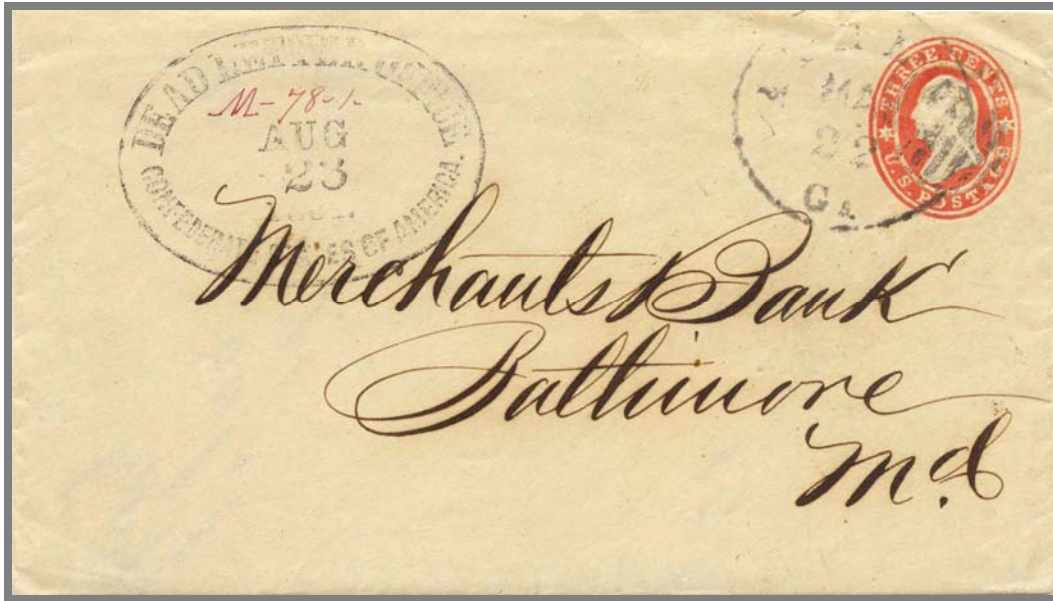 DEAD LETTER OFFICE.
M-78-1.
AUG
23
CONFEDERATE STATES OF AMERICA.
22
Ga.
THREE CENTS
U.S. POSTAGE
Merchants Bank
Baltimore
Md